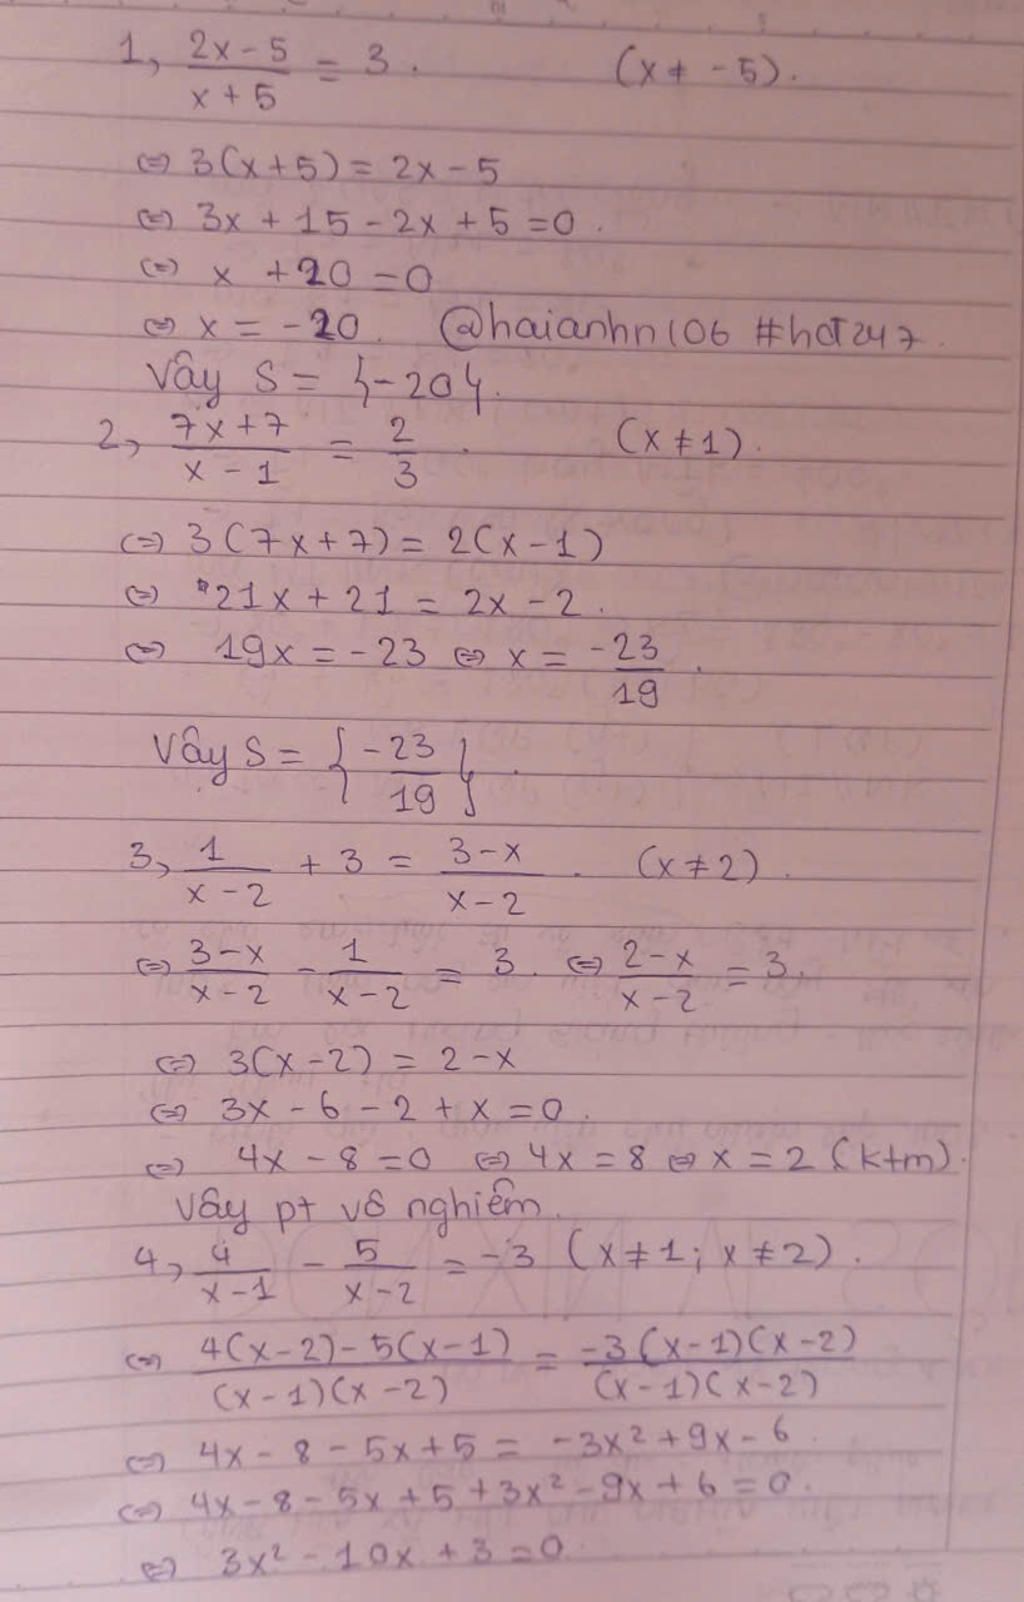 1, (2x-5)/(x+5) = 3. (x ≠ -5).
⇔ 3(x+5) = 2x-5
⇔ 3x + 15 - 2x + 5 = 0.
⇔ x + 20 = 0
⇔ x = -20. @haianhn106 #hot247
Vây S = {-20}.
2, (7x+7)/(x-1) = 2/3. (x ≠ 1).
⇔ 3(7x+7) = 2(x-1)
⇔ 21x + 21 = 2x - 2.
⇔ 19x = -23 ⇔ x = -23/19.
Vây S = {-23/19}.
3, 1/(x-2) + 3 = (3-x)/(x-2). (x ≠ 2).
⇔ (3-x)/(x-2) - 1/(x-2) = 3. ⇔ (2-x)/(x-2) = 3.
⇔ 3(x-2) = 2-x
⇔ 3x - 6 - 2 + x = 0.
⇔ 4x - 8 = 0 ⇔ 4x = 8 ⇔ x = 2 (ktm).
Vây pt vô nghiêm.
4, 4/(x-1) - 5/(x-2) = -3 (x ≠ 1; x ≠ 2).
⇔ (4(x-2) - 5(x-1))/((x-1)(x-2)) = (-3(x-1)(x-2))/((x-1)(x-2))
⇔ 4x - 8 - 5x + 5 = -3x² + 9x - 6.
⇔ 4x - 8 - 5x + 5 + 3x² - 9x + 6 = 0.
⇔ 3x² - 10x + 3 = 0.